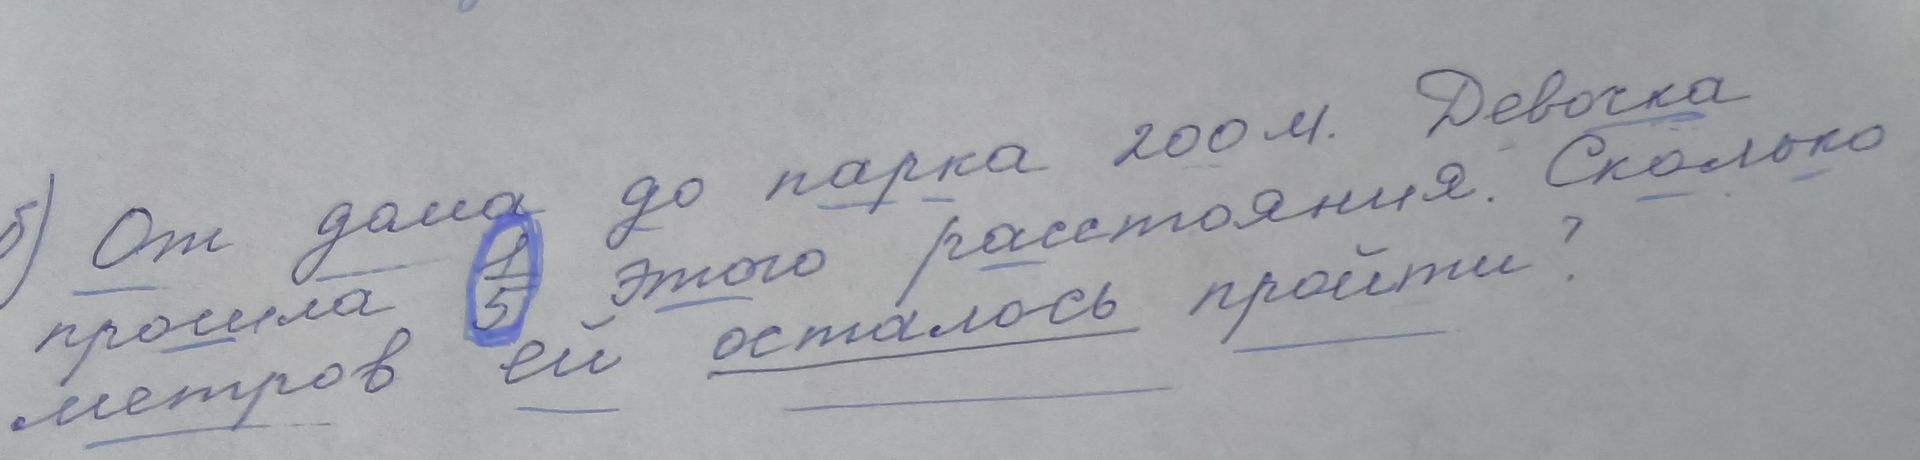 б) От дома до парка 200 м. Девочка
прошла 1/5 этого расстояния. Сколько
метров ей осталось пройти?